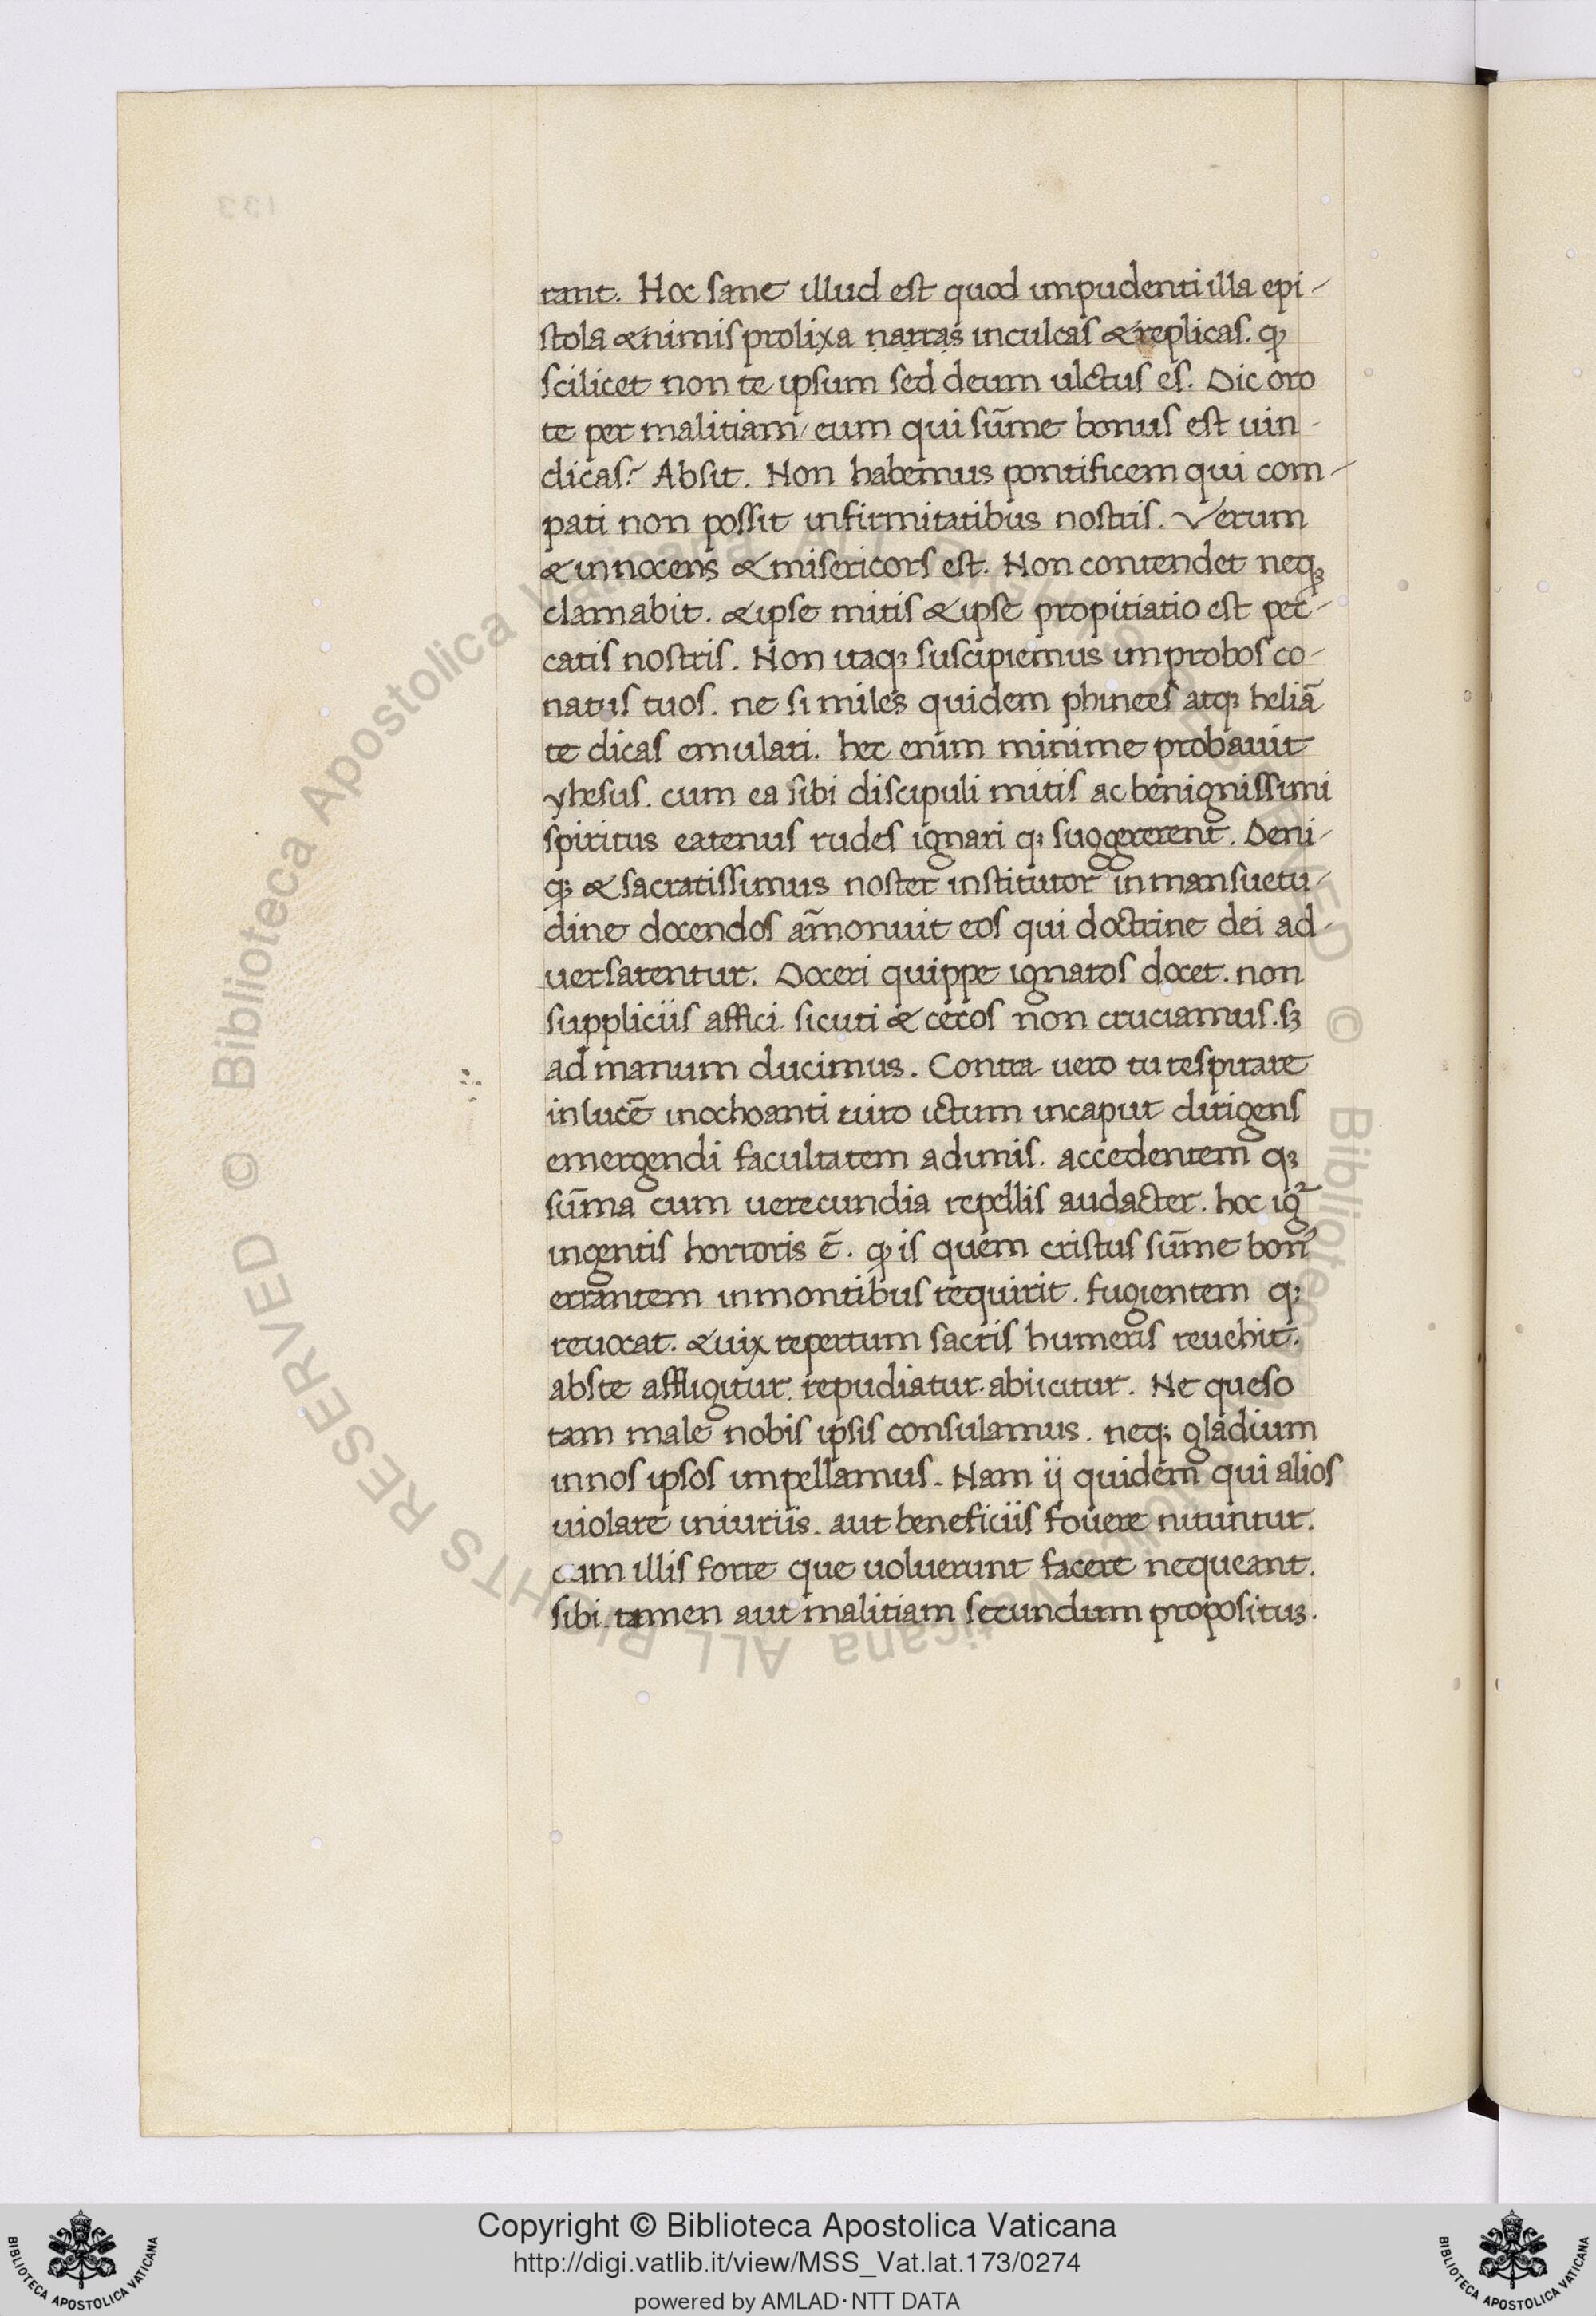 rant. Hoc sane illud est quod impudenti illa epi-
stola & nimis prolixa narras inculcas & replicas. ꝙ
scilicet non te ipsum sed deum ulctus es. Dic oro
te per malitiam/ eum qui sūme bonus est uin-
dicas? Absit. Non habemus pontificem qui com-
pati non possit infirmitatibus nostris. Verum
& innocens & misericors est. Non contendet neqꝫ
clamabit. & ipse mitis & ipse propitiatio est pec-
catis nostris. Non itaqꝫ suscipiemus improbos co-
natus tuos. ne si miles quidem phinees atqꝫ heliā
te dicas emulari. hec enim minime probauit
yhesus. cum ea sibi discipuli mitis ac benignissimi
spiritus eatenus rudes ignari qꝫ suggererent. Deni-
qꝫ & sacratissimus noster institutor in mansuetu-
dine docendos am̄onuit eos qui doctrine dei ad-
uersarentur. Doceri quippe ignaros docet. non
suppliciis affici. sicuti & cecos non cruciamus. sꝫ
ad manum ducimus. Contra uero tu respirare
in lucē inochoanti uiro ictum in caput dirigens
emergendi facultatem adimis. accedentem qꝫ
sūma cum uerecundia repellis audacter. hoc igr̄
ingentis horroris ē. ꝙ is quem cristus sūme bonꝰ
errantem in montibus requirit. fugientem qꝫ
reuocat. & uix repertum sacris humeris reuehit.
abs te affligitur. repudiatur. abiicitur. Ne queso
tam male nobis ipsis consulamus. neqꝫ gladium
in nos ipsos impellamus. Nam ij quidem qui alios
uiolare iniuriis. aut beneficiis fouere nituntur.
cum illis forte que uoluerunt facere nequeant.
sibi tamen aut malitiam secundum propositus.
Copyright © Biblioteca Apostolica Vaticana
http://digi.vatlib.it/view/MSS_Vat.lat.173/0274
powered by AMLAD·NTT DATA